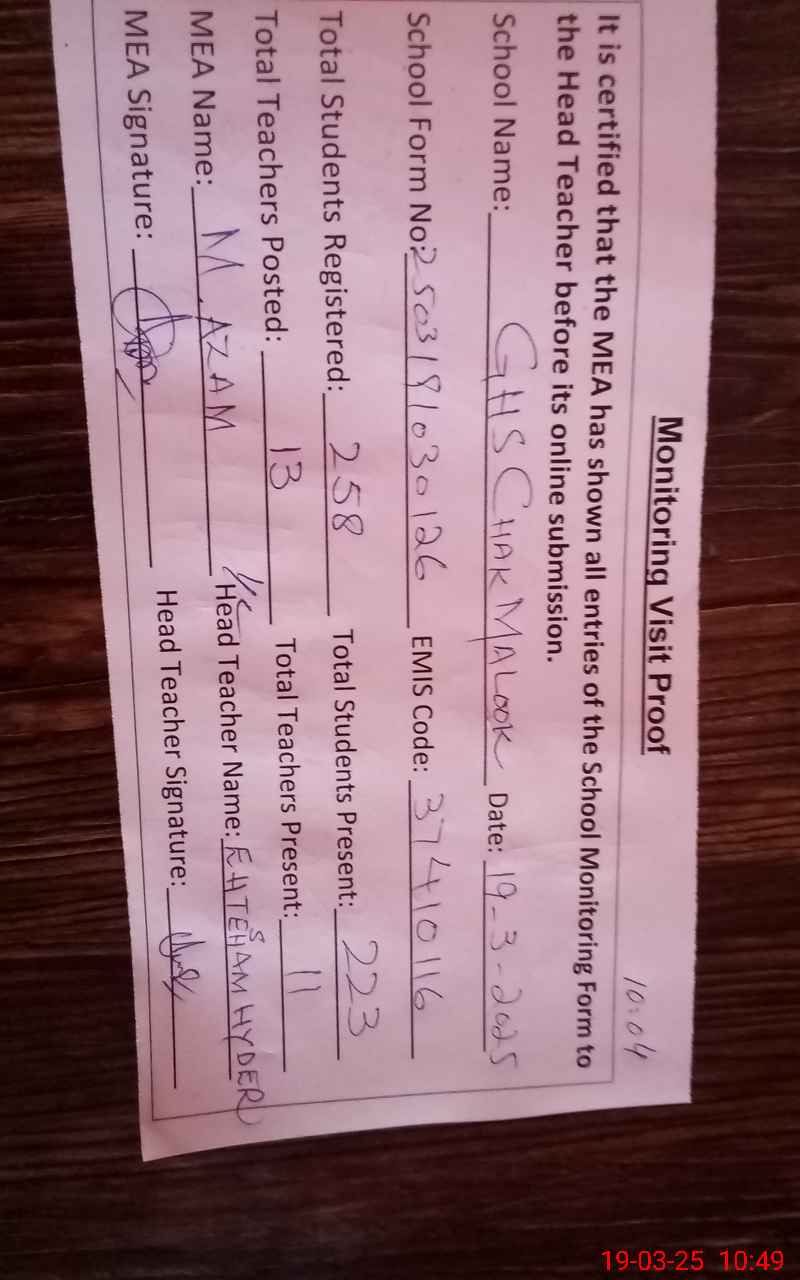 10:04
Monitoring Visit Proof
It is certified that the MEA has shown all entries of the School Monitoring Form to
the Head Teacher before its online submission.
School Name: GHS CHAK MALOOK Date: 19-3-2025
School Form No: 2503191030126 EMIS Code: 37410116
Total Students Registered: 258 Total Students Present: 223
Total Teachers Posted: 13 Total Teachers Present: 11
MEA Name: M. AZAM I/C Head Teacher Name: EHTESHAM HYDER
MEA Signature: Head Teacher Signature:
19-03-25 10:49